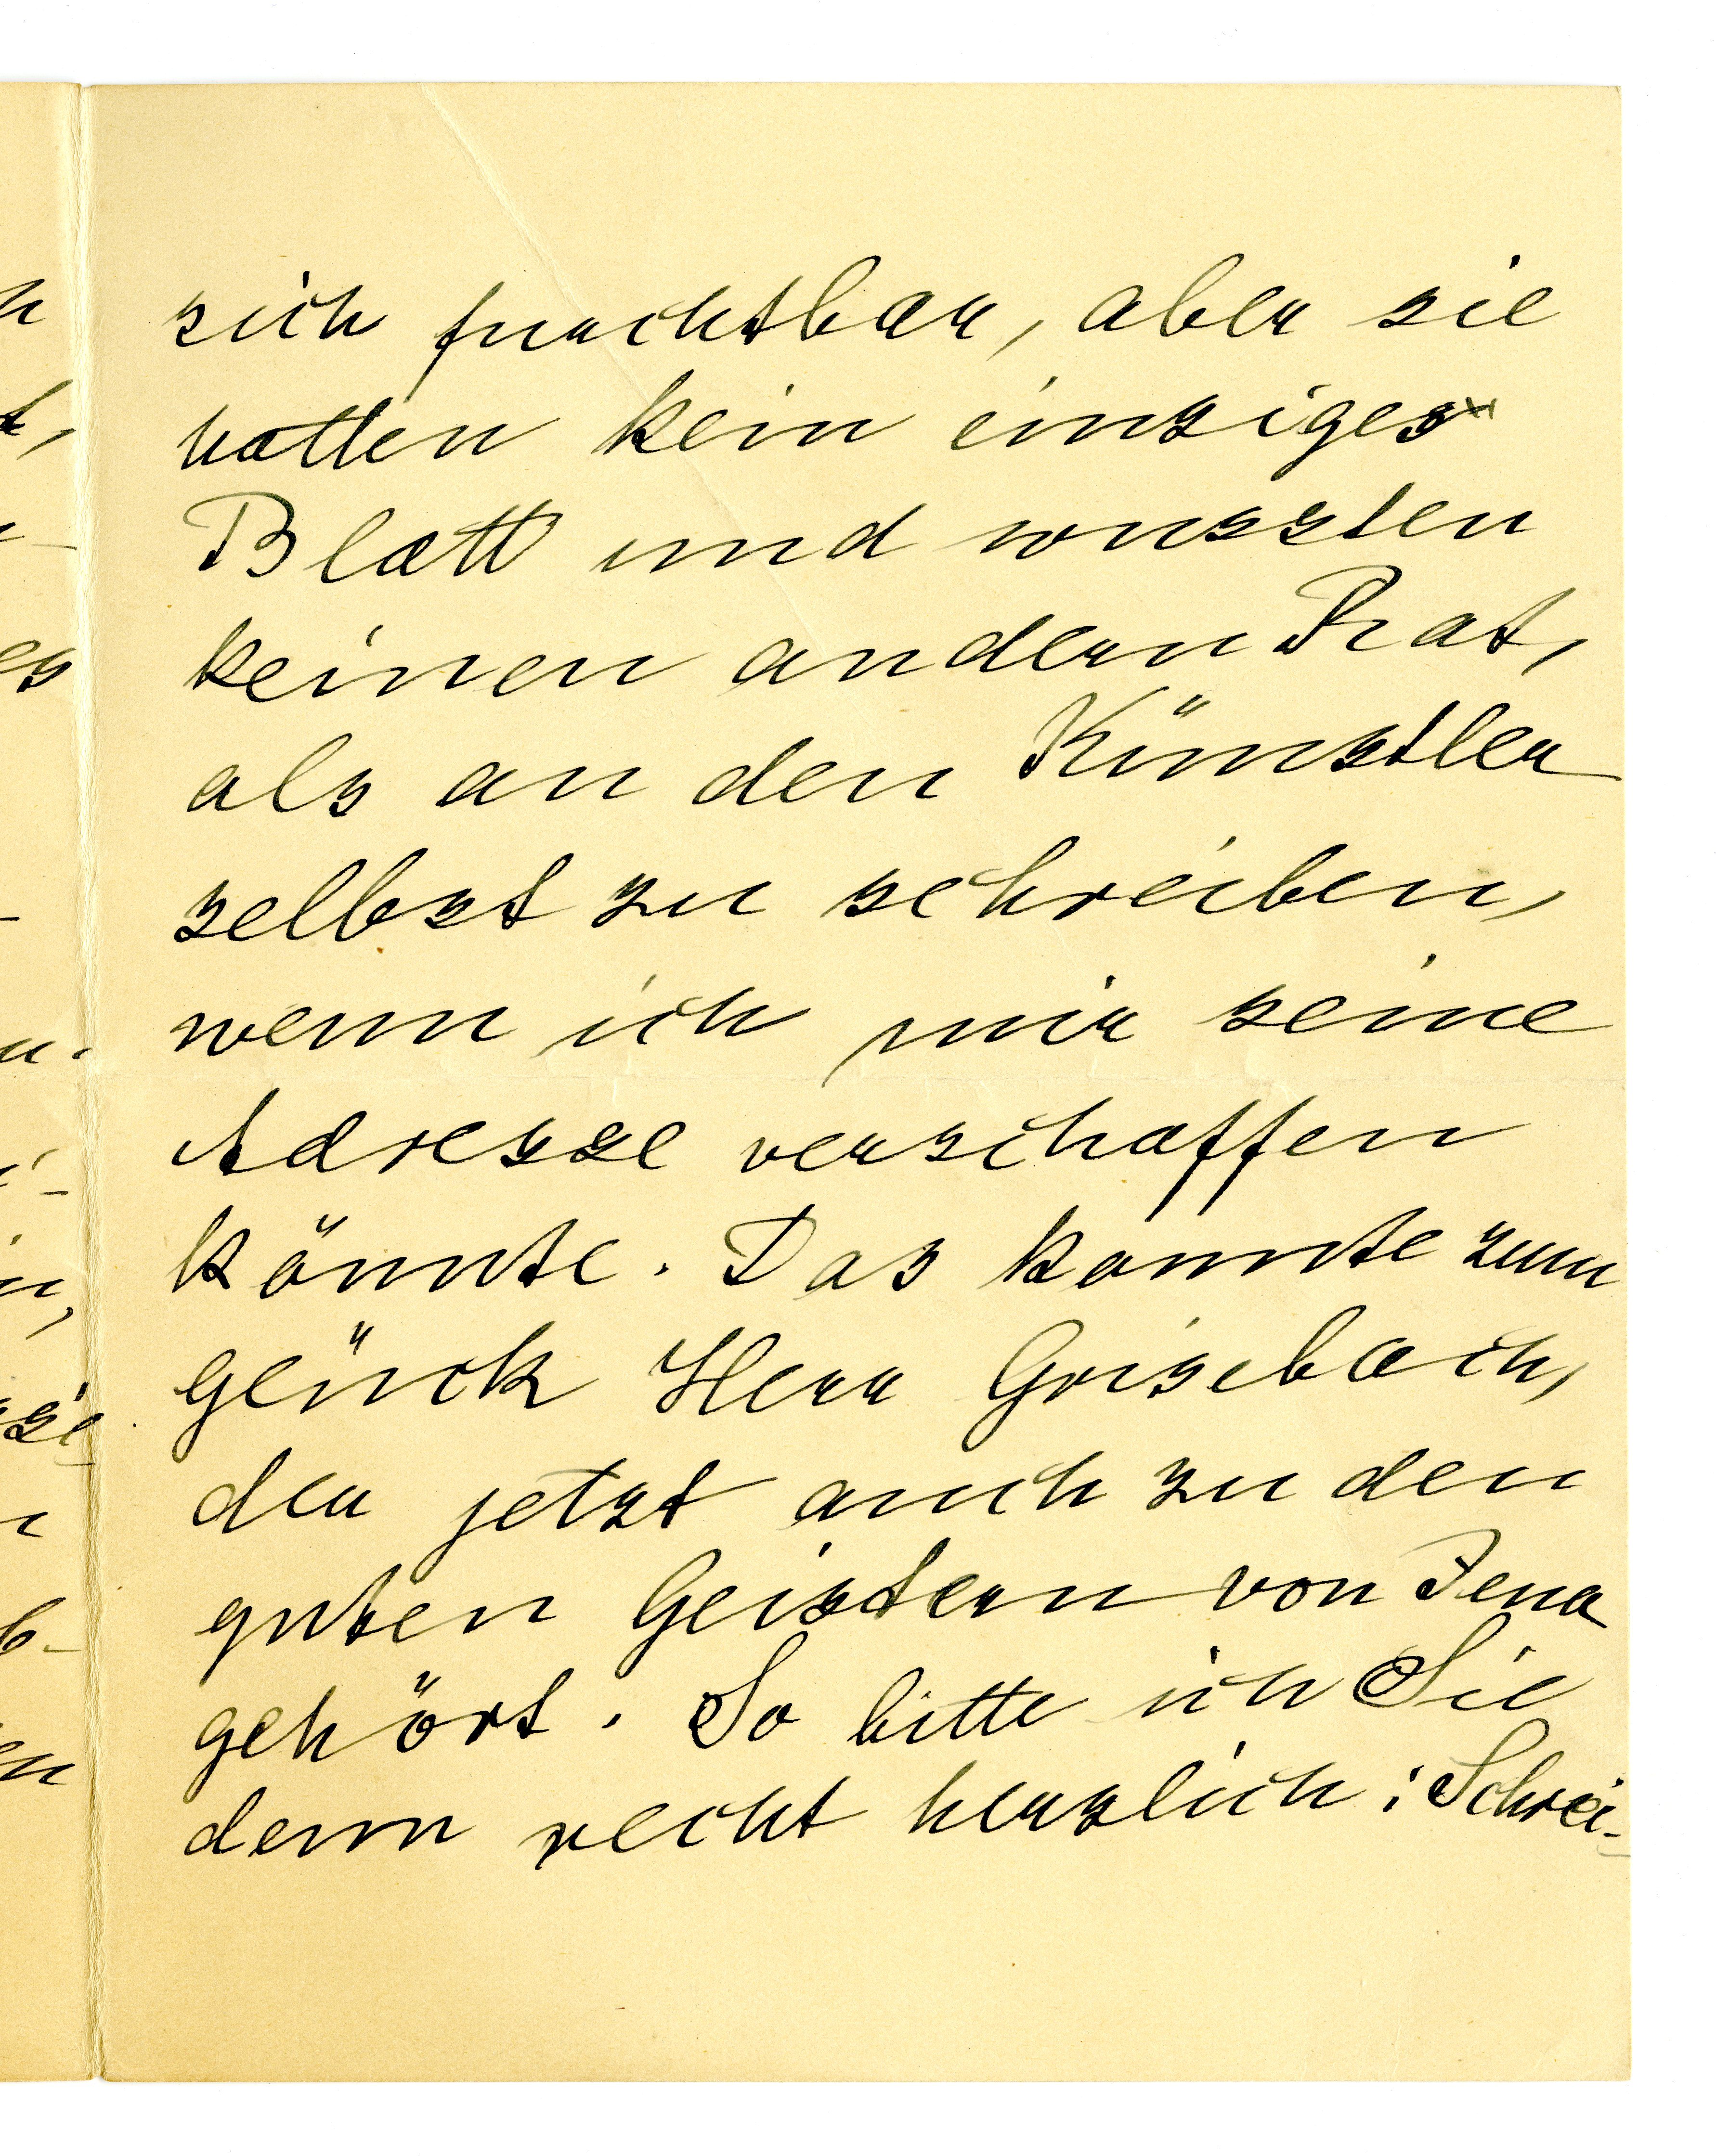 sich furchtbar, aber sie
hatten kein einziges
Blatt und wussten
keinen andern Rat,
als an den Künstler
selbst zu schreiben,
wenn ich mir seine
Adresse verschaffen
könnte. Das konnte zum
Glück Herr Grisebach,
der jetzt auch zu den
guten Geistern von Jena
gehört. So bitte ich Sie
denn recht herzlich: Schrei-